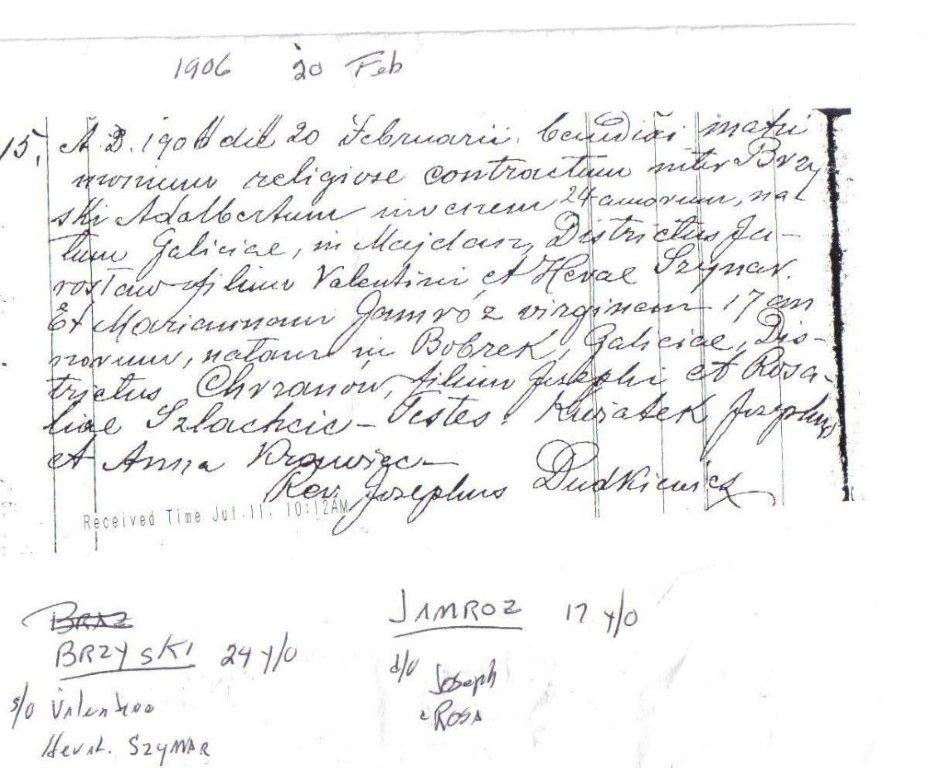 1906 20 Feb
15. A.D. 1906 die 20 Februarii. benedixi matri
monium religiose contractum inter Brzy
ski Adalbertum iuvenem 24 annorum, na
tum Galiciae, in Majdan, Districtus Ja-
rosław filium Valentini et Hevae Szynar.
Et Mariannam Jamróz virginem 17 an
norum, natam in Bobrek, Galiciae, Dis-
trictus Chrzanów, filium Josephi et Rosa-
liae Szlachcic - Testes: Kwiatek Josephus
et Anna Krawiec -
Rev. Josephus Dudkiewicz
Received Time Jul. 11. 10:12AM
BRAZ
BRZYSKI 24 y/o
s/o
SZYMAR
JAMROZ 17 y/o
d/o Joseph
ROSA